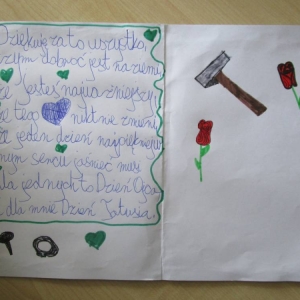 Dziękuję za to wszystko,
czym dobroć jest na ziemi
że Jesteś najważniejszy
tego nikt nie zmieni
że jeden dzień najpiękniej
w sercu jaśnieć musi
dla jednych to Dzień Ojca
dla mnie Dzień Tatusia